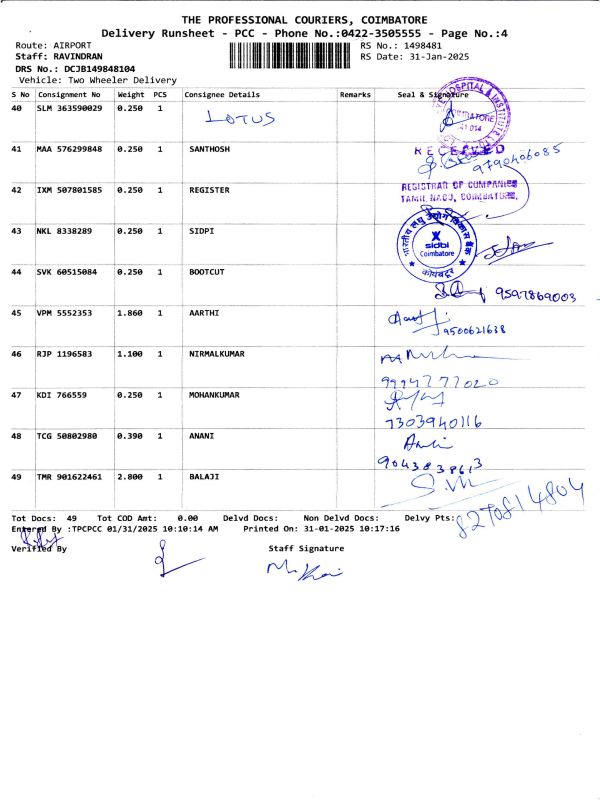 THE PROFESSIONAL COURIERS, COIMBATORE
Delivery Runsheet - PCC - Phone No.:0422-3505555 - Page No.:4
Route: AIRPORT RS No.: 1498481
Staff: RAVINDRAN RS Date: 31-Jan-2025
DRS No.: DCJB149848104
Vehicle: Two Wheeler Delivery
S No Consignment No Weight PCS Consignee Details Remarks Seal & Signature
40 SLM 363590029 0.250 1 LOTUS
HOSPITAL
COIMBATORE
41 MAA 576299848 0.250 1 SANTHOSH RECEIVED
9790406085
42 IXM 507801585 0.250 1 REGISTER REGISTRAR OF COMPANIES
TAMIL NADU, COIMBATORE.
43 NKL 8338289 0.250 1 SIDPI
भारतीय लघु उद्योग विकास बैंक
sidbi
Coimbatore
कोयंबटूर
44 SVK 60515084 0.250 1 BOOTCUT
9597869003
45 VPM 5552353 1.860 1 AARTHI
9500621638
46 RJP 1196583 1.100 1 NIRMALKUMAR
9994277020
47 KDI 766559 0.250 1 MOHANKUMAR
7303940116
48 TCG 50802980 0.390 1 ANANI
9043838613
49 TMR 901622461 2.800 1 BALAJI
Tot Docs: 49 Tot COD Amt: 0.00 Delvd Docs: Non Delvd Docs: Delvy Pts:
Entered By :TPCPCC 01/31/2025 10:10:14 AM Printed On: 31-01-2025 10:17:16
Verified By Staff Signature